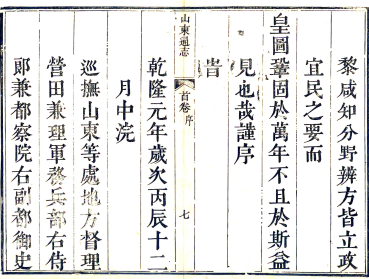 黎咸知分野辨方皆立政
宜民之要而
皇圖鞏固於萬年不且於斯益
見也哉謹序
旹
山東通志
首卷 序
七
乾隆元年歲次丙辰十二
月中浣
巡撫山東等處地方督理
營田兼理軍務兵部右侍
郎兼都察院右副都御史